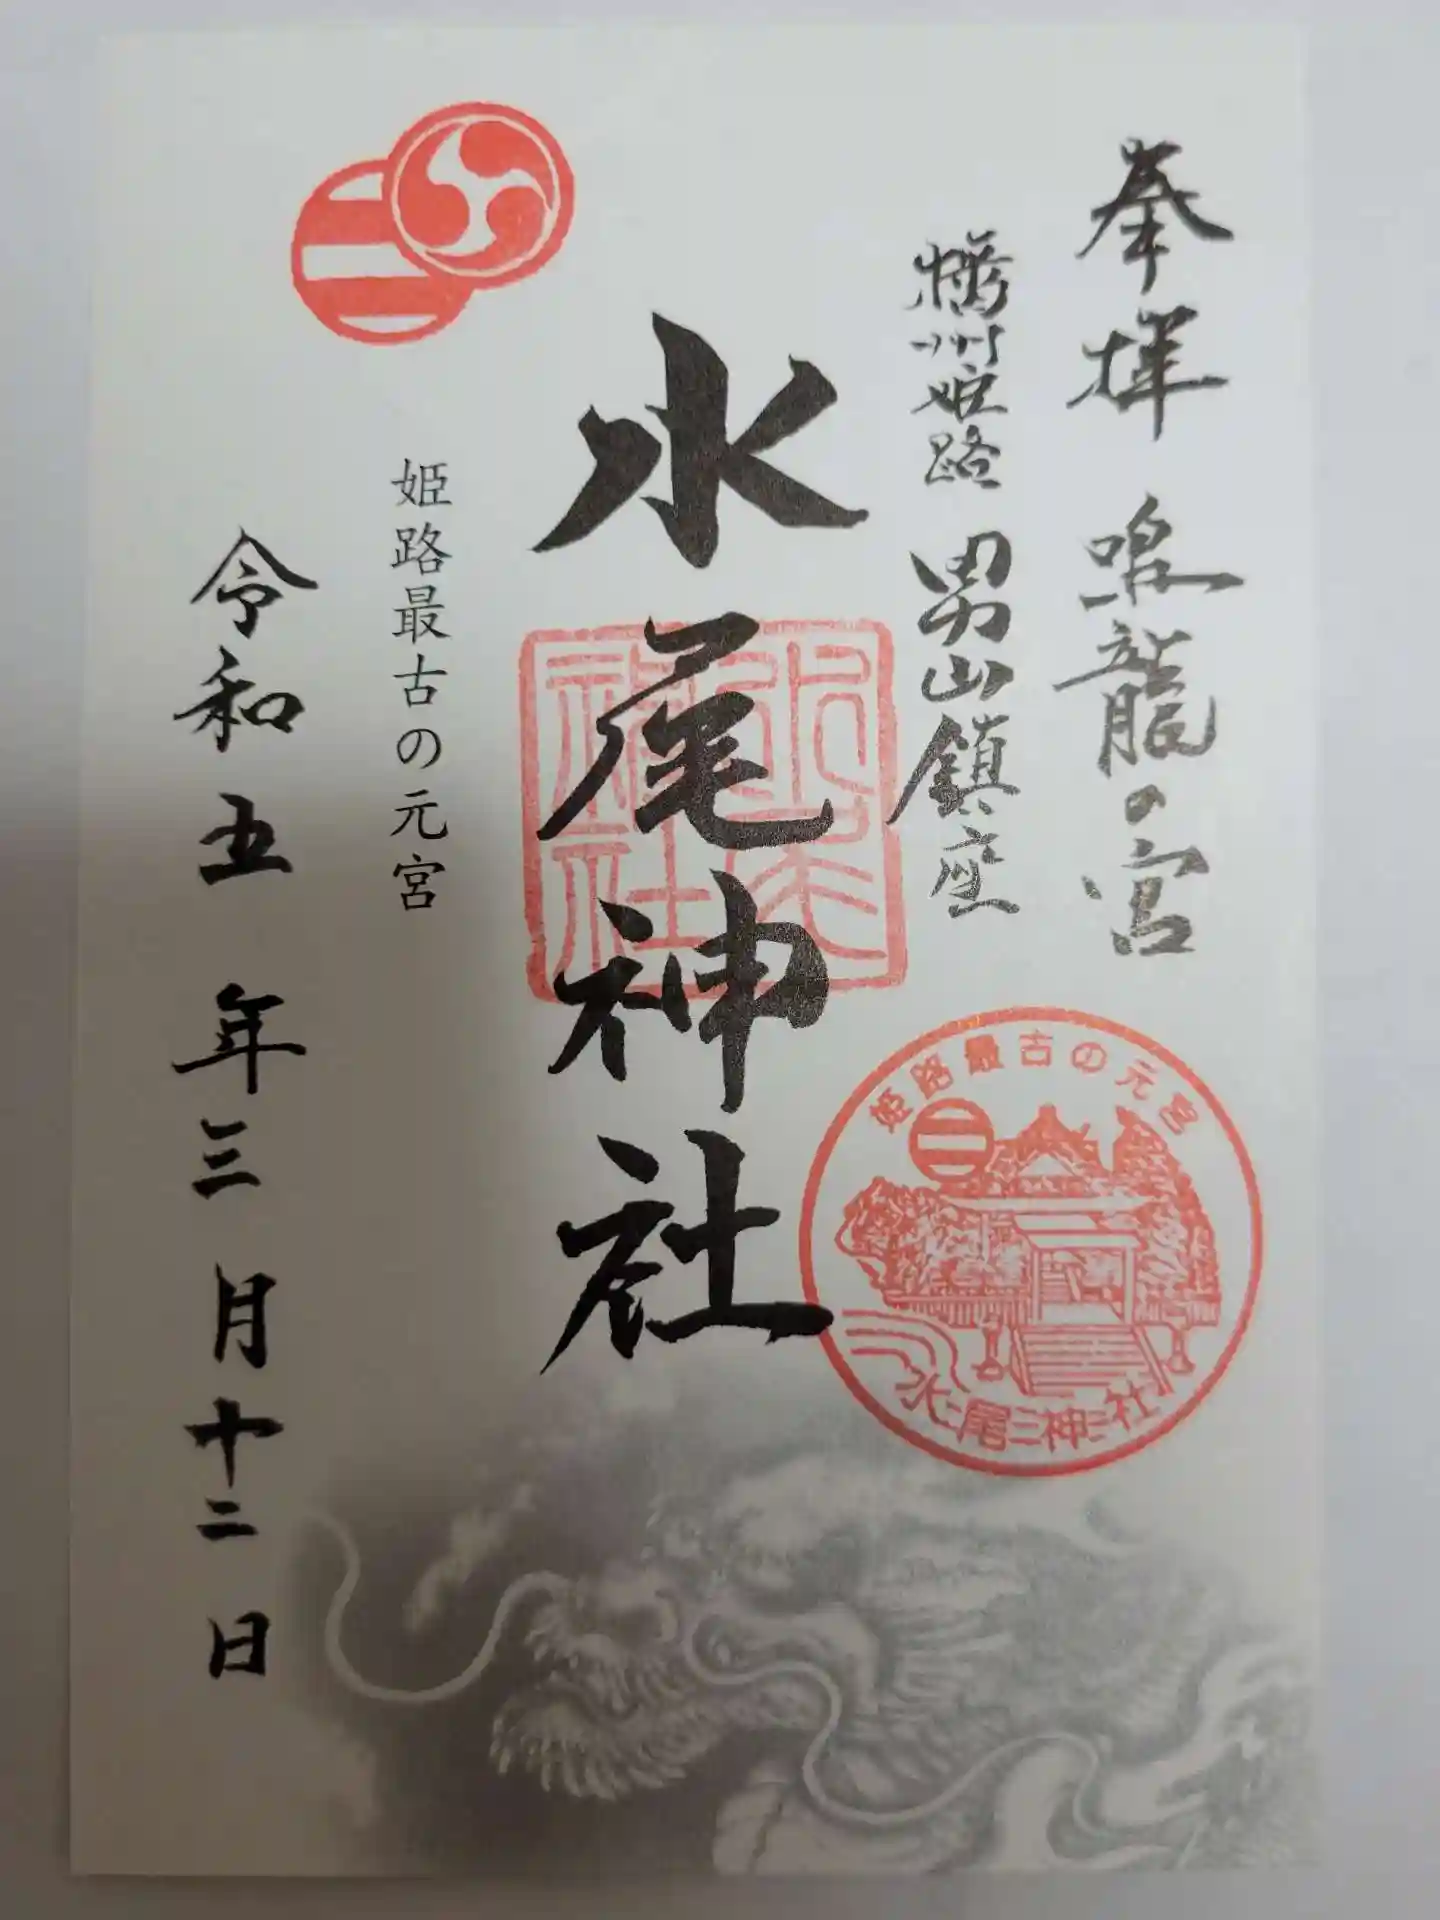 奉拝 鳴龍の宮
播州姫路 男山鎮座
水尾神社
姫路最古の元宮
令和五年三月十二日
姫路最古の元宮
水尾神社